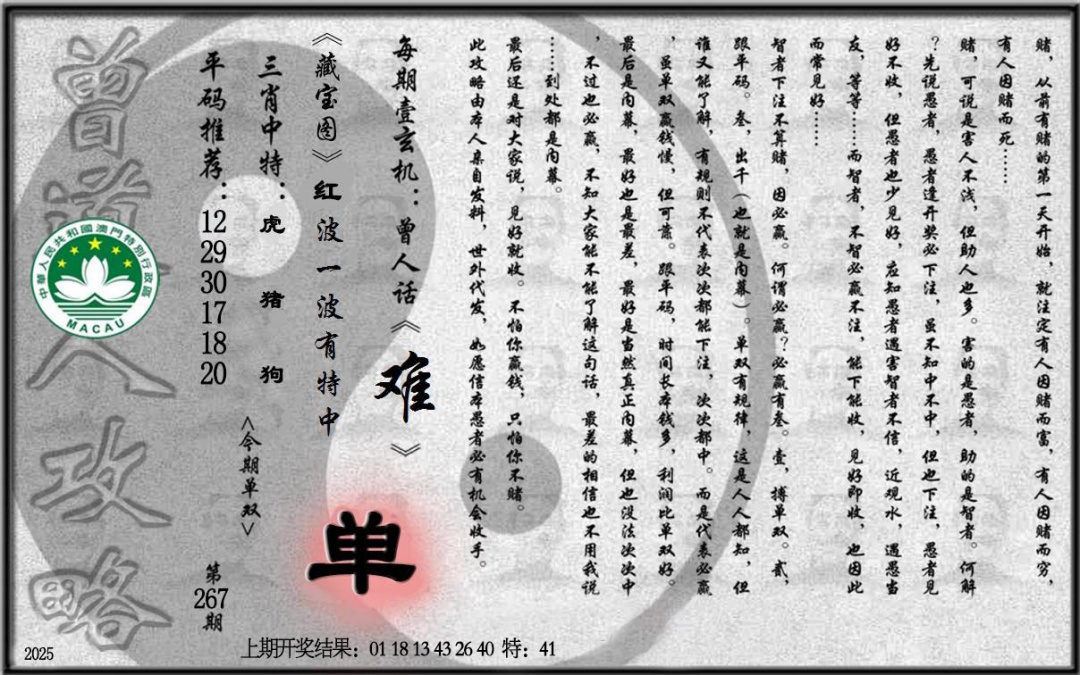 赌，从前有赌的第一天开始，就注定有人因赌而富，有人因赌而穷，
有人因赌而死……
赌，可说是害人不浅，但助人也多。害的是愚者，助的是智者。何解
？先说愚者，愚者逢开奖必下注，虽不知中不中，但也下注，愚者见
好不收，但愚者也少见好，应知愚者遇害智者不信，近观水，遇愚当
友，等等……而智者，不智必赢不注，能下能收，见好即收，也因此
而常见好……
智者下注不算赌，因必赢。何谓必赢？必赢有叁。壹，搏单双。贰，
跟单码。叁，出千（也就是内幕）。单双有规律，这是人人都知，但
谁又能了解，有规则不代表次次都能下注，次次都中。而是代表必赢
，虽单双赢钱慢，但可靠。跟单码，时间长本钱多，利润比单双好。
最后是内幕，最好也是最差，最好是当然真正内幕，但也没法次次中
，不过也必赢，不知大家能不能了解这句话，最差的相信也不用我说
……到处都是内幕。
最后还是对大家说，见好就收。不怕你赢钱，只怕你不赌。
此攻略由本人亲自发料，世外代发，如愿信本愚者必有机会收手。
每期壹玄机：曾人话《难》
《藏宝图》红波一波有特中
单
三肖中特：虎 猪 狗
<今期单双>
平码推荐：12 29 30 17 18 20
第267期
曾道人攻略
中華人民共和國澳門特別行政區
MACAU
2025
上期开奖结果：01 18 13 43 26 40 特：41